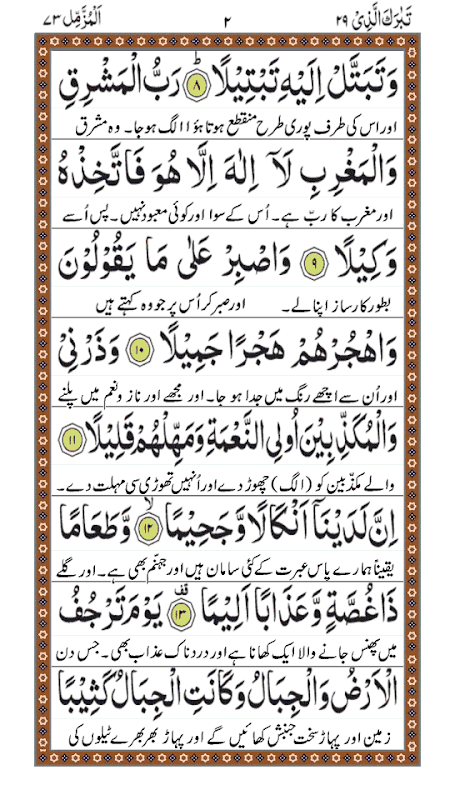 تَبٰرَكَ الَّذِیْ ۲۹ ۲ اَلْمُزَّمِّل ۷۳
وَتَبَتَّلْ اِلَیْهِ تَبْتِیْلًا ۸ رَبُّ الْمَشْرِقِ
اور اس کی طرف پوری طرح منقطع ہوتا ہؤا الگ ہوجا۔ وہ مشرق
وَالْمَغْرِبِ لَاۤ اِلٰهَ اِلَّا هُوَ فَاتَّخِذْهُ
اور مغرب کا ربّ ہے۔ اُس کے سوا اور کوئی معبود نہیں۔ پس اُسے
وَكِیْلًا ۹ وَاصْبِرْ عَلٰی مَا یَقُوْلُوْنَ
بطور کارساز اپنا لے۔ اور صبر کر اُس پر جو وہ کہتے ہیں
وَاهْجُرْهُمْ هَجْرًا جَمِیْلًا ۱۰ وَذَرْنِیْ
اور اُن سے اچھے رنگ میں جدا ہو جا۔ اور مجھے اور ناز و نعم میں پلنے
وَالْمُكَذِّبِیْنَ اُولِی النَّعْمَةِ وَمَهِّلْهُمْ قَلِیْلًا ۱۱
والے مکذّبین کو (الگ) چھوڑ دے اور اُنہیں تھوڑی سی مہلت دے۔
اِنَّ لَدَیْنَاۤ اَنْكَالًا وَّجَحِیْمًا ۱۲ۙ وَّطَعَامًا
یقیناً ہمارے پاس عبرت کے کئی سامان ہیں اور جہنّم بھی ہے۔ اور گلے
ذَاغُصَّةٍ وَّعَذَابًا اَلِیْمًا ۱۳ قف یَوْمَ تَرْجُفُ
میں پھنس جانے والا ایک کھانا ہے اور دردناک عذاب بھی۔ جس دن
الْاَرْضُ وَالْجِبَالُ وَكَانَتِ الْجِبَالُ كَثِیْبًا
زمین اور پہاڑ سخت جنبش کھائیں گے اور پہاڑ بھربھرے ٹیلوں کی